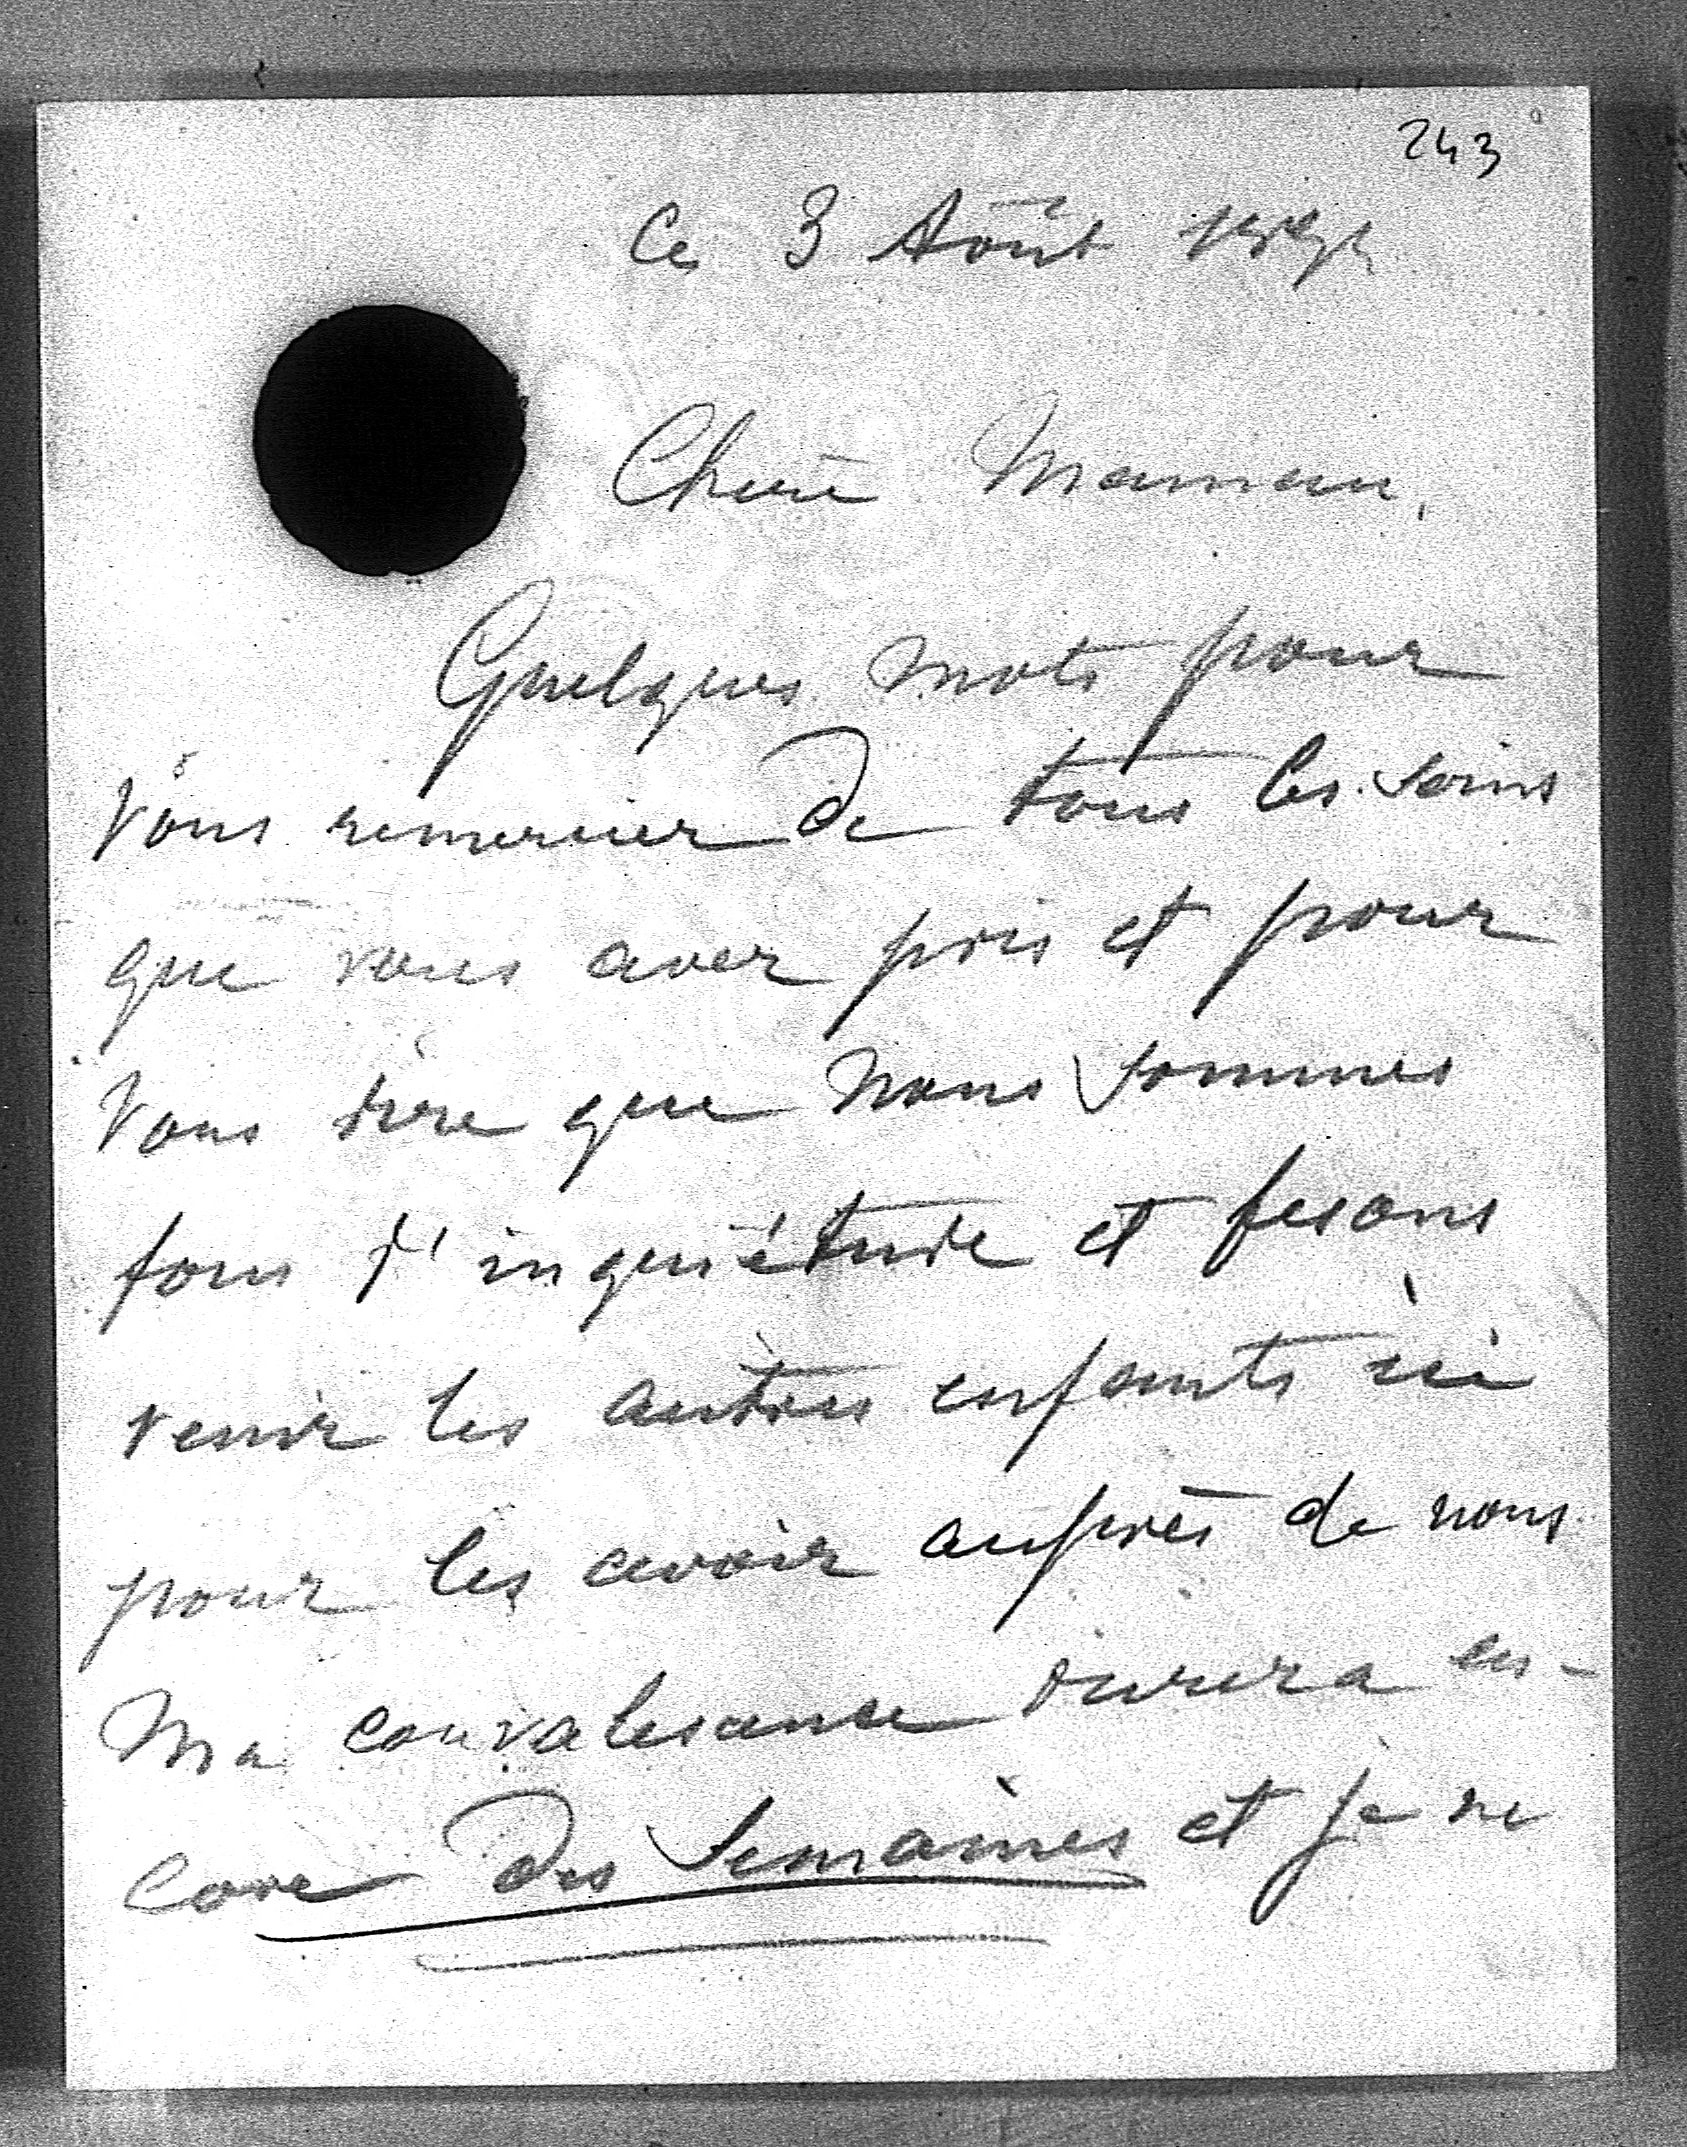 243
Ce 3 Août
Chère Maman,
Quelques mots pour
vous remercier de tous les soins
que vous avez pris et pour
vous dire que nous sommes
fous d'inquiétude et fesons
venir les autres enfants ici
pour les avoir auprès de nous
Ma convalesance durera en-
core des semaines et je ne